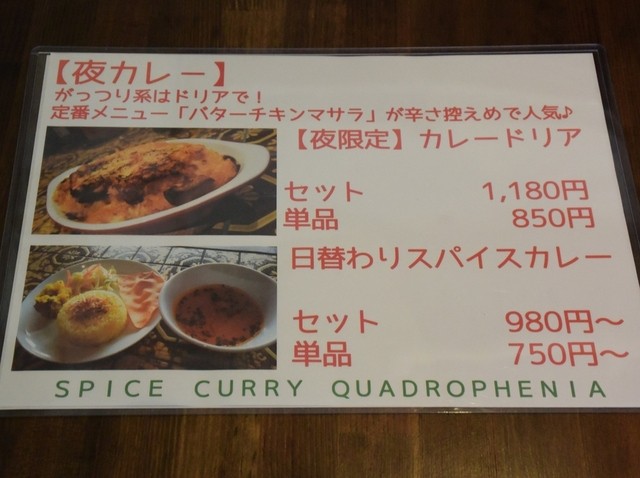 【夜カレー】
がっつり系はドリアで！
定番メニュー「バターチキンマサラ」が辛さ控えめで人気♪
【夜限定】カレードリア
セット 1,180円
単品 850円
日替わりスパイスカレー
セット 980円～
単品 750円～
SPICE CURRY QUADROPHENIA